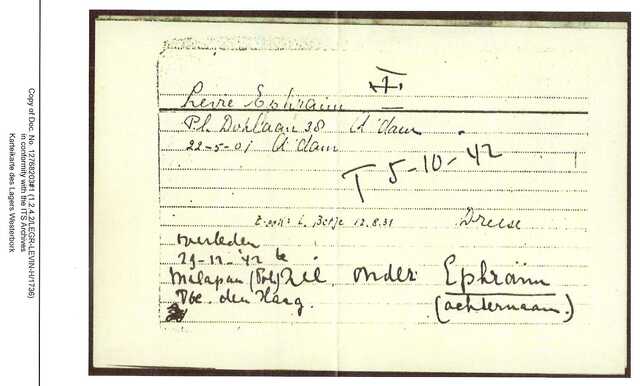 Copy of Doc. No. 12768203#1 (1.2.4.2/LEGR-LEVIN-H/1736)
in conformity with the ITS Archives
Karteikarte des Lagers Westerbork
Levie Ephraim
P.L. 38 A'dam
22-5-01 A'dam
T 5-10-42
L. Betje 12.8.31
overleden
29-12-'42 te
Malapan (Pol) Zie onder Ephraim
den Haag. (achternaam.)